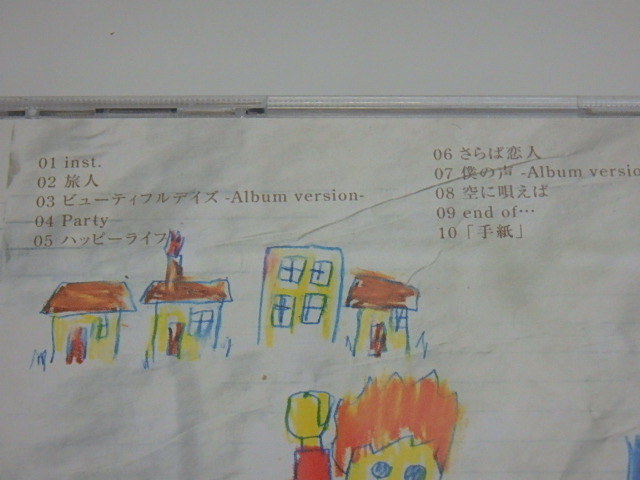 01 inst.
02 旅人
03 ビューティフルデイズ -Album version-
04 Party
05 ハッピーライフ
06 さらば恋人
07 僕の声 -Album versio
08 空に唄えば
09 end of…
10 「手紙」